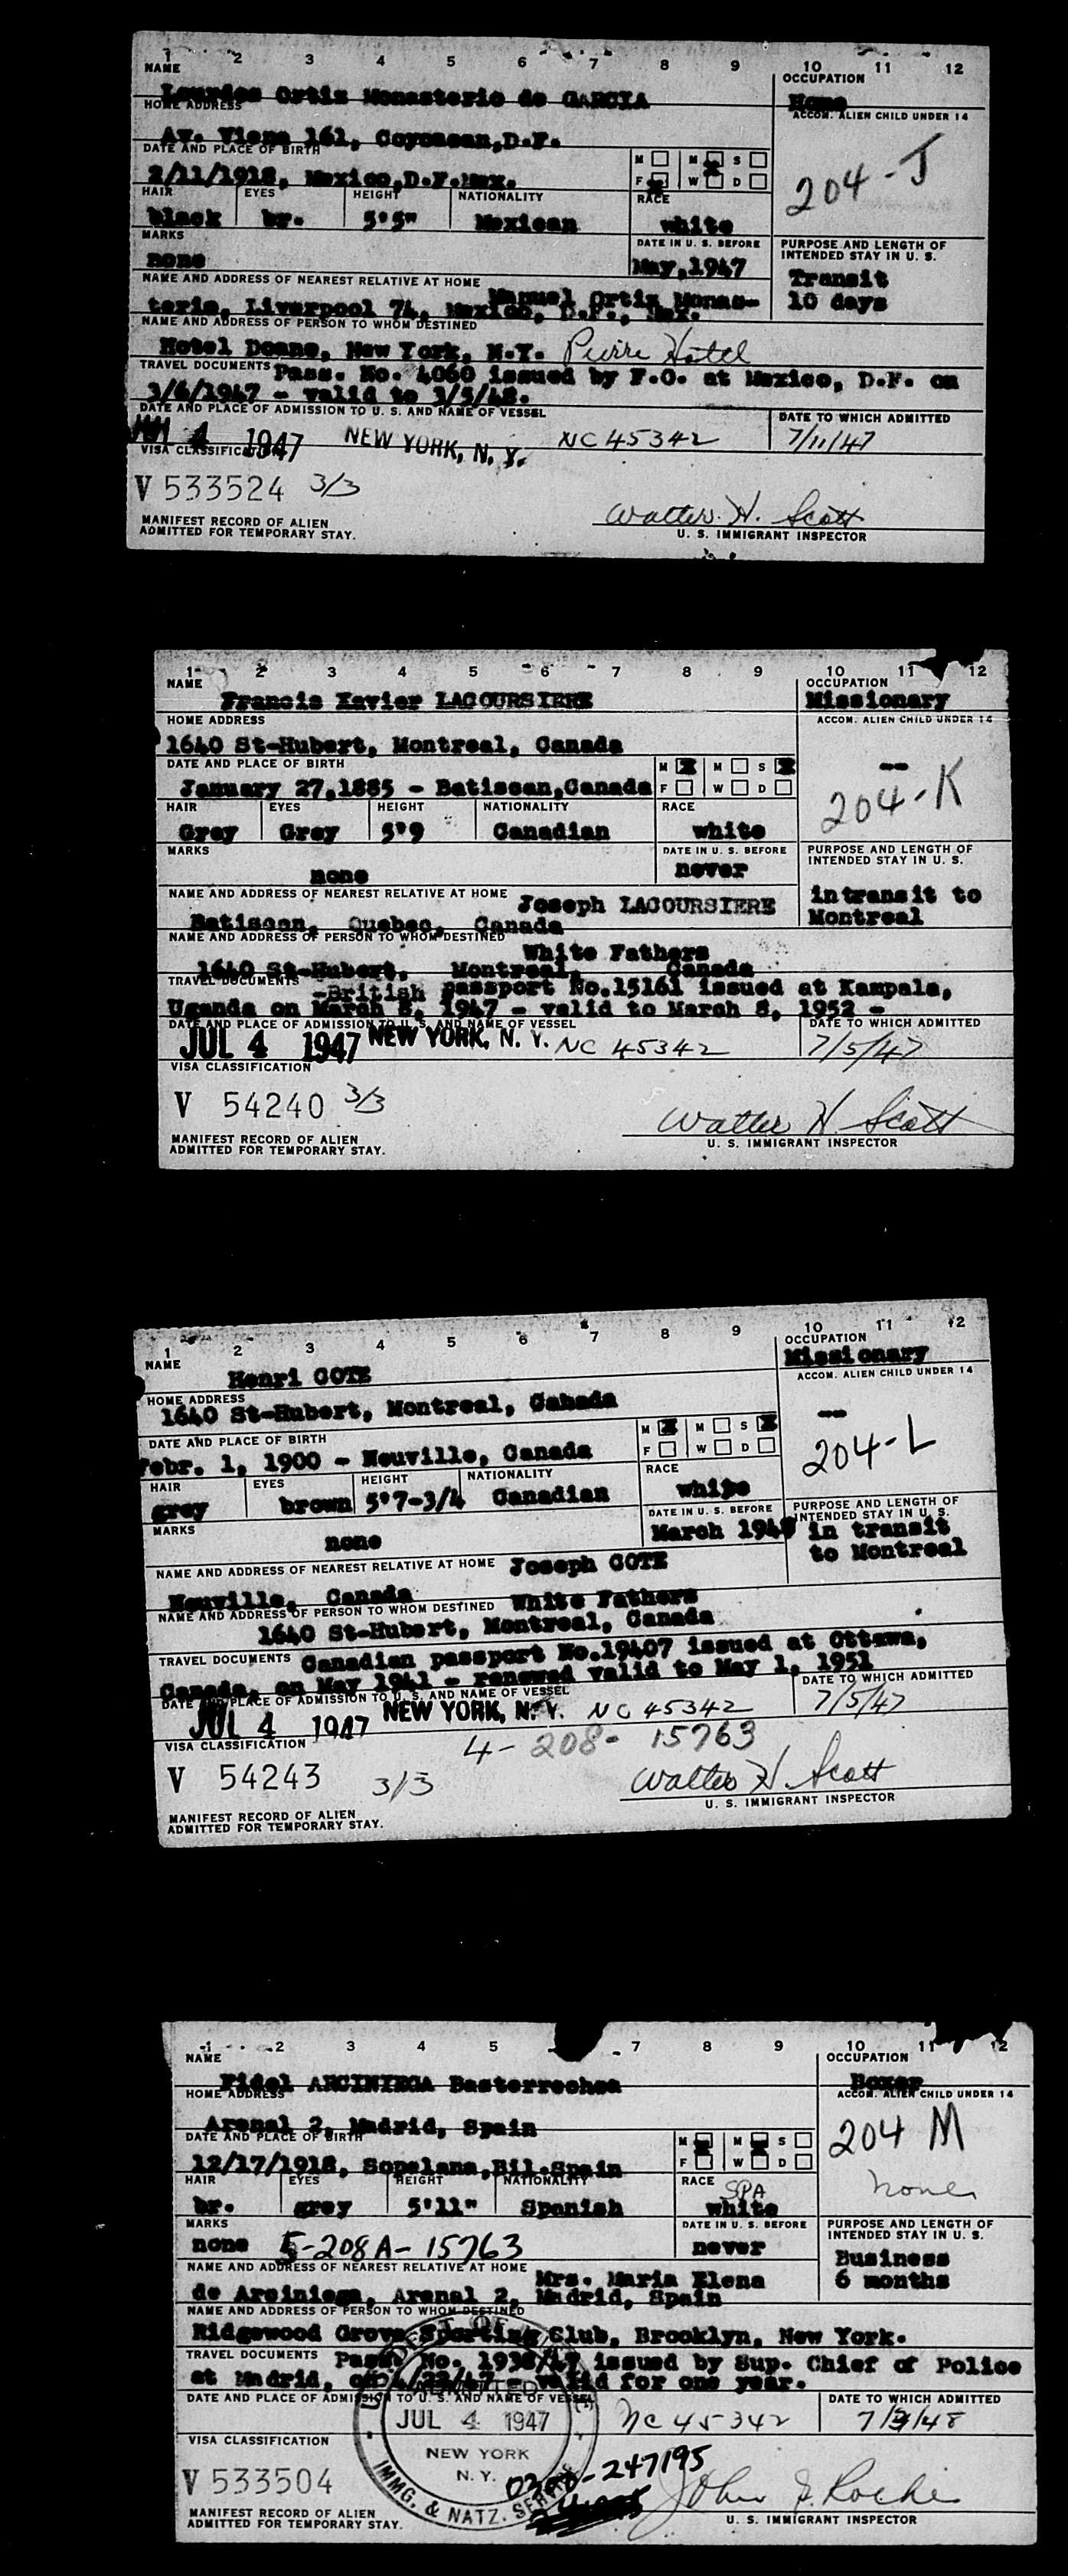 1 2 3 4 5 6 7 8 9 10 11 12
NAME OCCUPATION
Lourdes Ortiz Monasterio de GARCIA Home
HOME ADDRESS ACCOM. ALIEN CHILD UNDER 14
Av. Viena 161, Coyoacan,D.F.
DATE AND PLACE OF BIRTH M M S
2/11/1918, Mexico,D.F.Mex. F W D 204-J
HAIR EYES HEIGHT NATIONALITY RACE
black br. 5'5" Mexican white
MARKS DATE IN U. S. BEFORE PURPOSE AND LENGTH OF INTENDED STAY IN U. S.
none May,1947 Transit
NAME AND ADDRESS OF NEAREST RELATIVE AT HOME Manuel Ortiz Monas- 10 days
terio, Liverpool 74, Mexico, D.F., Mex.
NAME AND ADDRESS OF PERSON TO WHOM DESTINED
Hotel Doane, New York, N.Y. Pierre Hotel
TRAVEL DOCUMENTS Pass. No. 4060 issued by F.O. at Mexico, D.F. on
3/6/1947 - valid to 3/5/48.
DATE AND PLACE OF ADMISSION TO U. S. AND NAME OF VESSEL DATE TO WHICH ADMITTED
4 1947 NEW YORK, N. Y. NC 45342 7/11/47
VISA CLASSIFICATION
V 533524 3/3
Walter H. Scott
MANIFEST RECORD OF ALIEN
ADMITTED FOR TEMPORARY STAY. U. S. IMMIGRANT INSPECTOR
1 2 3 4 5 6 7 8 9 10 11 12
NAME OCCUPATION
Francis Xavier LACOURSIERE Missionary
HOME ADDRESS ACCOM. ALIEN CHILD UNDER 14
1640 St-Hubert, Montreal, Canada
DATE AND PLACE OF BIRTH M M S --
January 27,1885 - Batiscan,Canada F W D 204-K
HAIR EYES HEIGHT NATIONALITY RACE
Grey Grey 5'9 Canadian white
MARKS DATE IN U. S. BEFORE PURPOSE AND LENGTH OF INTENDED STAY IN U. S.
none never
NAME AND ADDRESS OF NEAREST RELATIVE AT HOME Joseph LACOURSIERE intransit to
Batiscan, Quebec, Canada Montreal
NAME AND ADDRESS OF PERSON TO WHOM DESTINED White Fathers
1640 St-Hubert, Montreal, Canada
TRAVEL DOCUMENTS -British passport No.15161 issued at Kampala,
Uganda on March 8, 1947 - valid to March 8, 1952 -
DATE AND PLACE OF ADMISSION TO U. S. AND NAME OF VESSEL DATE TO WHICH ADMITTED
JUL 4 1947 NEW YORK, N. Y. NC 45342 7/5/47
VISA CLASSIFICATION
V 54240 3/3
Walter H Scott
MANIFEST RECORD OF ALIEN
ADMITTED FOR TEMPORARY STAY. U. S. IMMIGRANT INSPECTOR
1 2 3 4 5 6 7 8 9 10 11 12
NAME OCCUPATION
Henri COTE Missionary
HOME ADDRESS ACCOM. ALIEN CHILD UNDER 14
1640 St-Hubert, Montreal, Cahada
DATE AND PLACE OF BIRTH M M S --
Febr. 1, 1900 - Neuville, Canada F W D 204-L
HAIR EYES HEIGHT NATIONALITY RACE
grey brown 5'7-3/4 Canadian white
MARKS DATE IN U. S. BEFORE PURPOSE AND LENGTH OF INTENDED STAY IN U. S.
none March in transit
NAME AND ADDRESS OF NEAREST RELATIVE AT HOME Joseph COTE to Montreal
Neuville, Canada
NAME AND ADDRESS OF PERSON TO WHOM DESTINED White Fathers
1640 St-Hubert, Montreal, Canada
TRAVEL DOCUMENTS Canadian passport No.19407 issued at Ottawa,
Canada, on May 1941 - renewed valid to May 1, 1951
DATE AND PLACE OF ADMISSION TO U. S. AND NAME OF VESSEL DATE TO WHICH ADMITTED
JUL 4 1947 NEW YORK, N. Y. NC 45342 7/5/47
VISA CLASSIFICATION 4-208-15763
V 54243 3/3 Walter H. Scott
MANIFEST RECORD OF ALIEN
ADMITTED FOR TEMPORARY STAY. U. S. IMMIGRANT INSPECTOR
1 2 3 4 5 7 8 9 10 11 12
NAME OCCUPATION
Fidel ARCINIEGA Basterrechea Boxer
HOME ADDRESS ACCOM. ALIEN CHILD UNDER 14
Arenal 2, Madrid, Spain
DATE AND PLACE OF BIRTH M M S 204 M
12/17/1918, Sopelana,Bil.Spain F W D
HAIR EYES HEIGHT NATIONALITY RACE SPA none
br. grey 5'11" Spanish white
MARKS DATE IN U. S. BEFORE PURPOSE AND LENGTH OF INTENDED STAY IN U. S.
none 5-208A-15763 never Business
NAME AND ADDRESS OF NEAREST RELATIVE AT HOME Mrs. Maria Elena 6 months
de Arciniega, Arenal 2, Madrid, Spain
NAME AND ADDRESS OF PERSON TO WHOM DESTINED
Ridgewood Grove Sporting Club, Brooklyn, New York.
TRAVEL DOCUMENTS Pass. No. issued by Sup. Chief of Police
at Madrid, on - valid for one year.
DATE AND PLACE OF ADMISSION TO U. S. AND NAME OF VESSEL DATE TO WHICH ADMITTED
ADMITTED
JUL 4 1947 NC 45342 7/3/48
VISA CLASSIFICATION
NEW YORK
N. Y.
IMMG. & NATZ. SERVICE
V 533504 0300-247195
John S. Roche
MANIFEST RECORD OF ALIEN
ADMITTED FOR TEMPORARY STAY. U. S. IMMIGRANT INSPECTOR